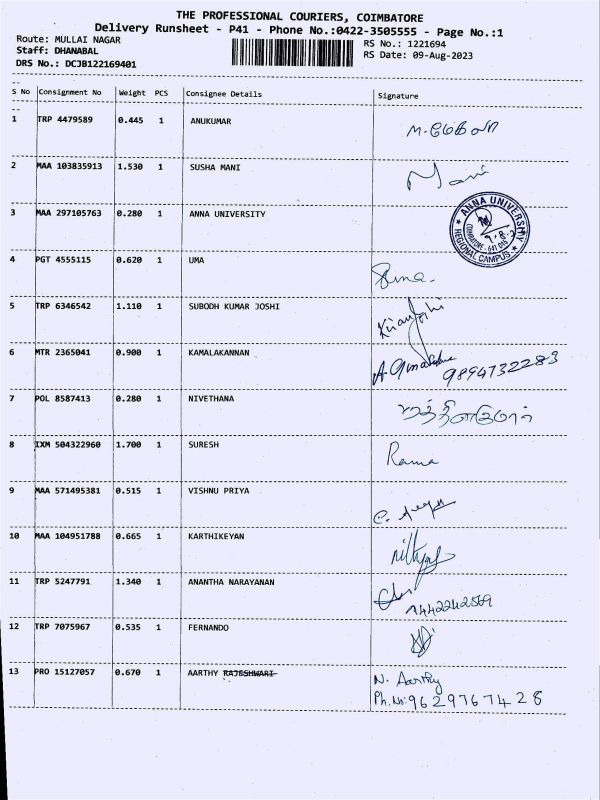 THE PROFESSIONAL COURIERS, COIMBATORE
Delivery Runsheet - P41 - Phone No.:0422-3505555 - Page No.:1
Route: MULLAI NAGAR
RS No.: 1221694
Staff: DHANABAL
RS Date: 09-Aug-2023
DRS No.: DCJB122169401
S No Consignment No Weight PCS Consignee Details Signature
1 TRP 4479589 0.445 1 ANUKUMAR
2 MAA 103835913 1.530 1 SUSHA MANI Mani
3 MAA 297105763 0.280 1 ANNA UNIVERSITY
ANNA UNIVERSITY
REGIONAL CAMPUS
4 PGT 4555115 0.620 1 UMA
5 TRP 6346542 1.110 1 SUBODH KUMAR JOSHI
6 MTR 2365041 0.900 1 KAMALAKANNAN
9894732283
7 POL 8587413 0.280 1 NIVETHANA
8 IXM 504322960 1.700 1 SURESH Rama
9 MAA 571495381 0.515 1 VISHNU PRIYA
10 MAA 104951788 0.665 1 KARTHIKEYAN
11 TRP 5247791 1.340 1 ANANTHA NARAYANAN
12 TRP 7075967 0.535 1 FERNANDO
13 PRO 15127057 0.670 1 AARTHY RAJESHWARI N. Aarthy
Ph.No: 9629767428